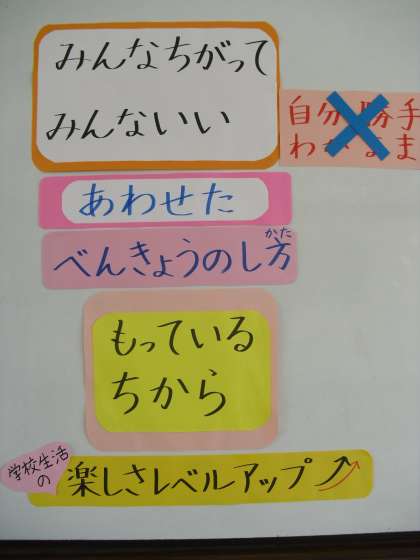 みんなちがって
みんないい
自分勝手
わがまま
あわせた
べんきょうのし方
かた
もっている
ちから
学校生活
の
楽しさレベルアップ